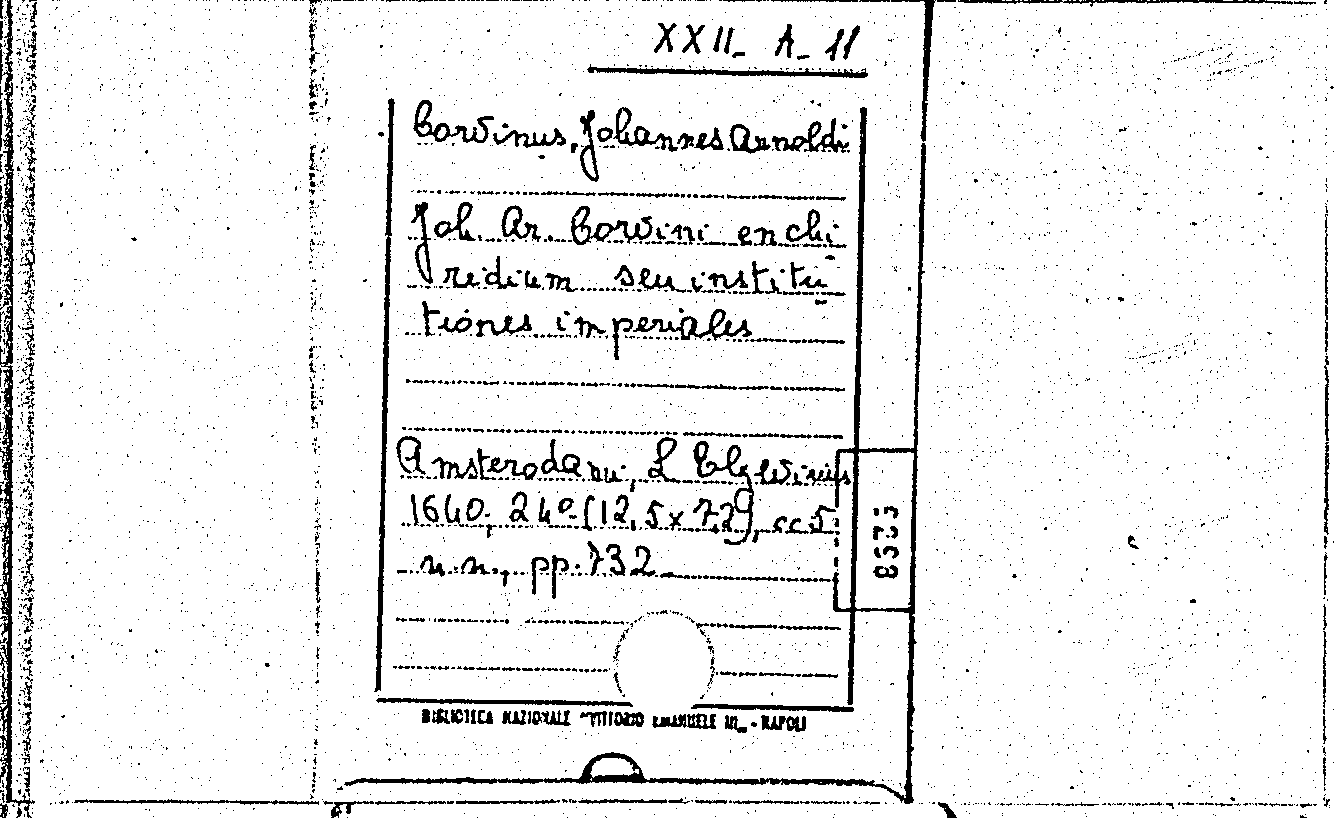 XXII- A- 11
Corvinus, Johannes Arnoldi
Joh. Ar. Corvini enchi
ridium seu institu
tiones imperiales
Amsterodami, L Elzevirius
1640, 24º (12,5x7,2), cc 5
n.n., pp. 732
BIBLIOTECA NAZIONALE "VITTORIO EMANUELE III„ - NAPOLI